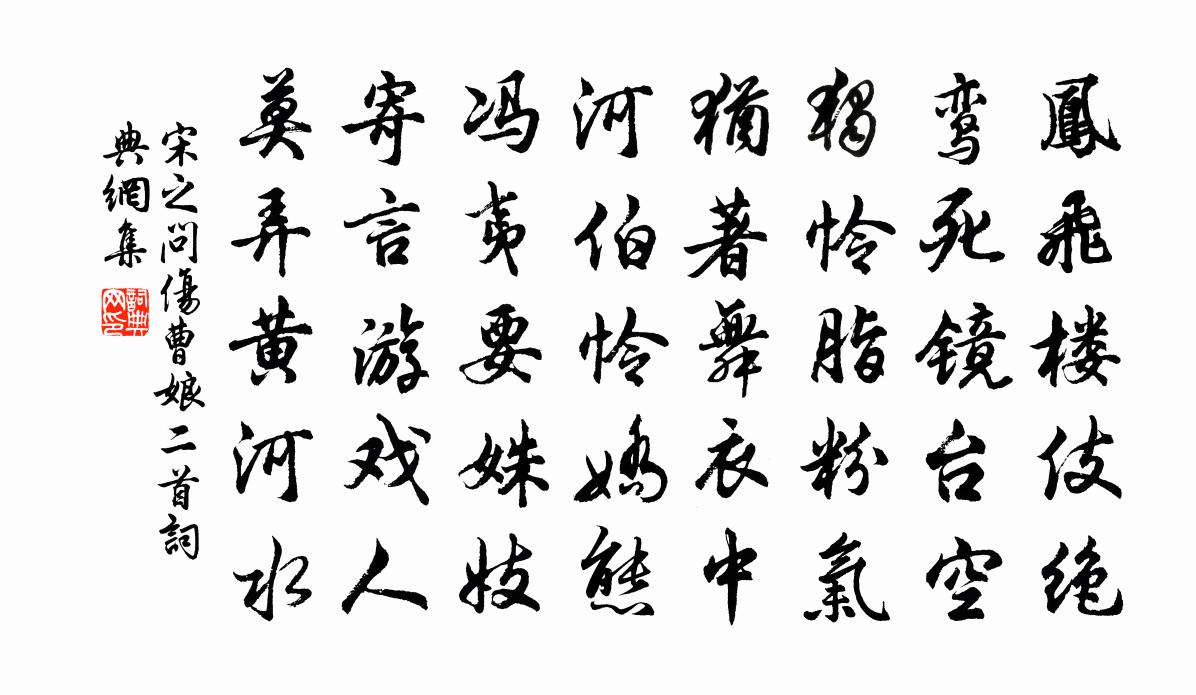 鳳飛楼伎绝
鸾死镜台空
独怜脂粉氣
猶著舞衣中
河伯怜嬌態
冯夷要姝妓
寄言游戏人
莫弄黄河水
宋之问傷曹娘二首詞
典網集
詞典
网印